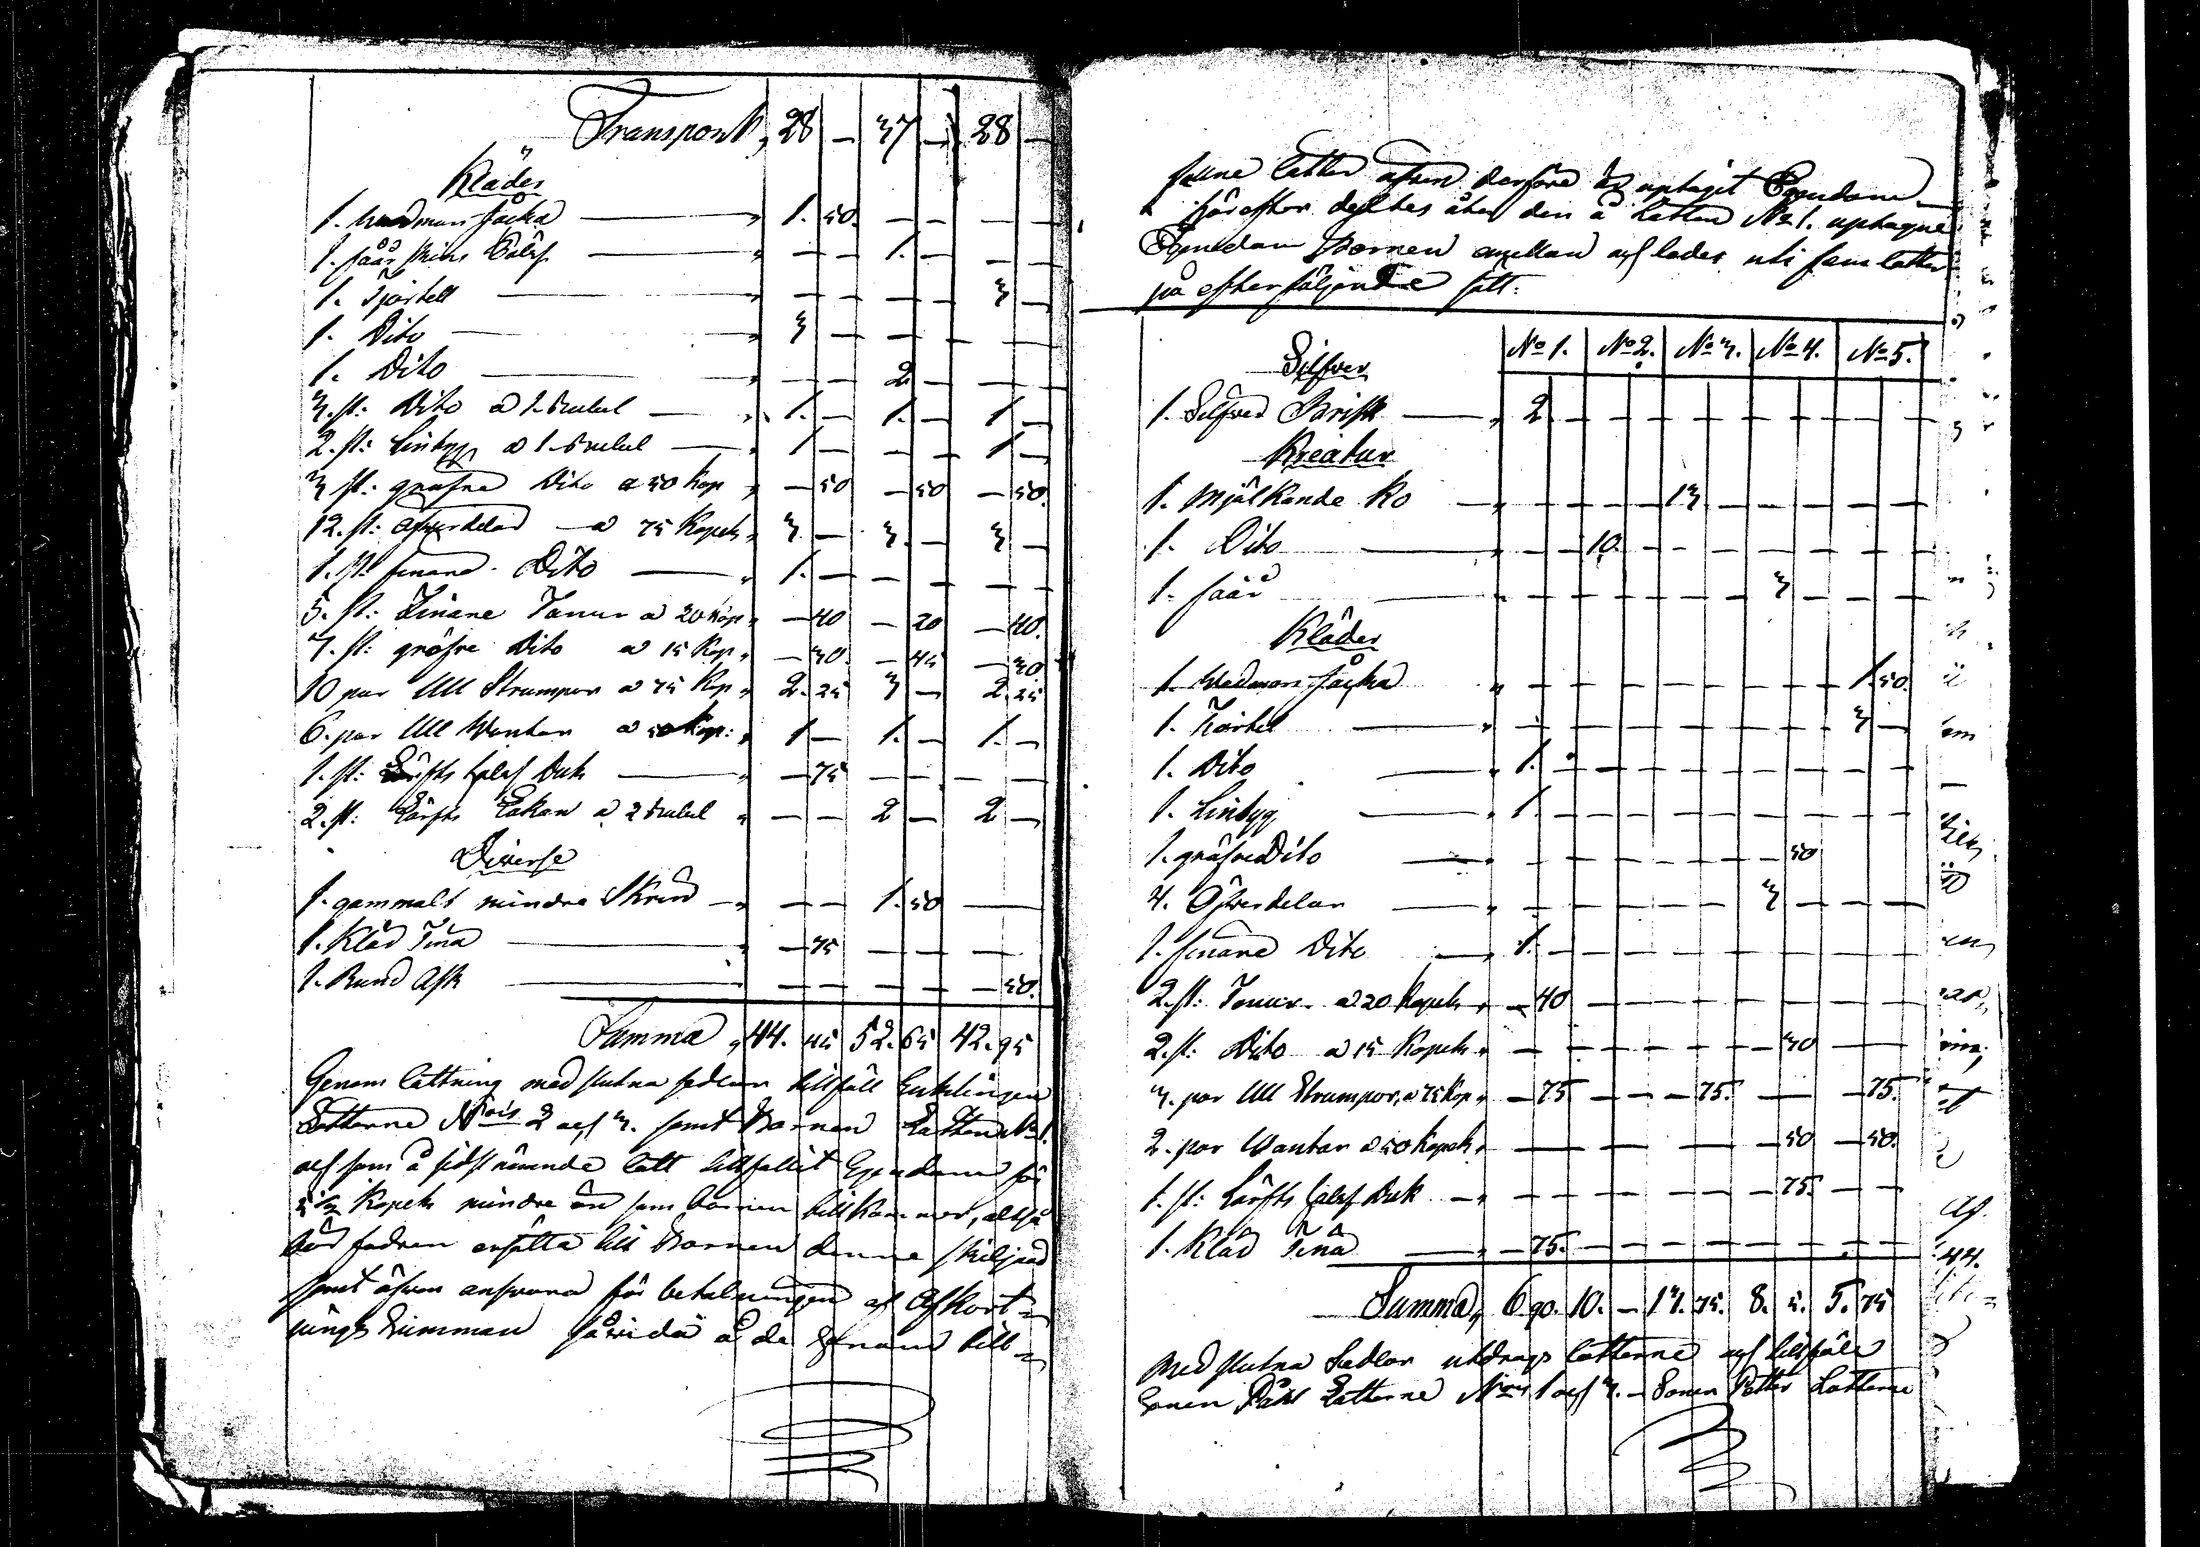 Transport, 28 — 37 — 28 —
Kläder
1. Wadmans jacka — 1. 50. — — — —
1. fåår skins — — 1. — — —
1. Kjortell — — — — 3 —
1. Dito — 3 — — — — —
1. Dito — — — 2 — — —
3. st: Dito a 1. Rubel — 1. — 1. — 1 —
2. st: Lintyg a 1. Rubel — 1 — — — 1 —
3 st: gräfre Dito a 50 Kop — 50 — 50 — 50.
12. st: Öfverdelar — a 75 Kopek 3 — 3 — 3 —
1. st: finare Dito — 1. — — — — —
5. st: finare a 20 Kop — 40 — 20 — 40.
7. st: gräfre Dito a 15 Kop — 30. — 45 — 30
10 par Ull Strumpor a 75 Kop 2. 25 3 — 2. 25
6. par Ull Wantar a 50 Kop: 1 — 1. — 1. —
1. st: Lärfts Duk — 75 — — — —
2. st: Lärfts Lakan a 2 Rubel — — 2 — 2 —
Diverse
1. gammalt mindre Skrin — — — 1. 50 —
1. Kläd Tina — 75 — — — —
1. Rund Ask — — — — — 50.
Summa, 44. 45 52. 65 42. 95
Genom lottning med slutna sedlar tillföll Enklingen
Lotterne N:ris 2 och 3. samt Barnen Lotten N:1.
och som å sidst nämnde lott tillfallit Egendom för
Kopek mindre än som barnen tillkommer, altså
bör fadren ersätta till Barnen denne skiljnad
samt äfven ansvara för betalningen af Afkort-
nings Summan såvida å de honom till-
fallne lotter äfven derföre är uptagit Egendom
Härefter deeltes åter den å Lotten N:1. uptagne
Egendom Barnen emellan och lades uti fem lotter
på efterföljande sätt:
N:o 1. N:o 2. N:o 3. N:o 4. N:o 5.
Silfver
1. Silfver — 2 — — — — — — — — —
Kreatur
1. Mjölkande Ko — — — — 13 — — — — —
1. Dito — — — 10. — — — — — — —
1. fåår — — — — — — 3 — — —
Kläder
1. Wadmans jacka — — — — — — — — 1. 50.
1. Kjortel — — — — — — — — 3 —
1. Dito — 1. — — — — — — — —
1. Lintyg — 1. — — — — — — — —
1. gräfre Dito — — — — — — — 50 — —
4. Öfverdelar — — — — — — 3 — — —
1. finare Dito — 1. — — — — — — — —
2. st: a 20 Kopek — 40 — — — — — — — —
2. st: Dito a 15 Kopek — — — — — — — 30 — —
3. par Ull Strumpor, a 75 Kop — 75 — — — 75. — — — 75.
2. par Wantar a 50 Kopek — — — — — — — 50 — 50.
1. st: Lärfts Duk — — — — — — — 75. — —
1. Kläd Tina — 75. — — — — — — — —
Summa, 6 90. 10. — 13. 75. 8. 5. 5. 75
Med slutna Sedlar utdrogs lotterne och tillföll
Sonen Lotterne 1 och 3. — Sonen Petter Lotterne